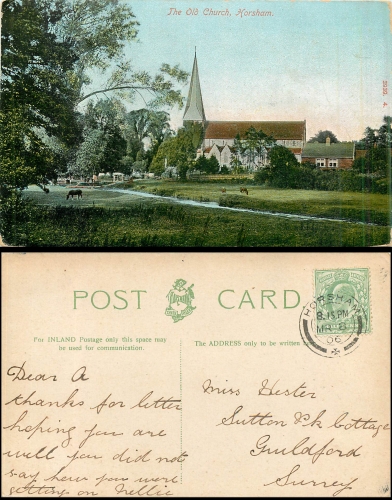 The Old Church, Horsham.
POST CARD
For INLAND Postage only this space may
be used for communication.
The ADDRESS only to be written
HORSHAM
8.15 PM
06
Dear A
thanks for letter
hoping you are
well you did not
say how you were
getting on Nellie
Miss Hester
Sutton Pk Cottage
Guildford
Surrey